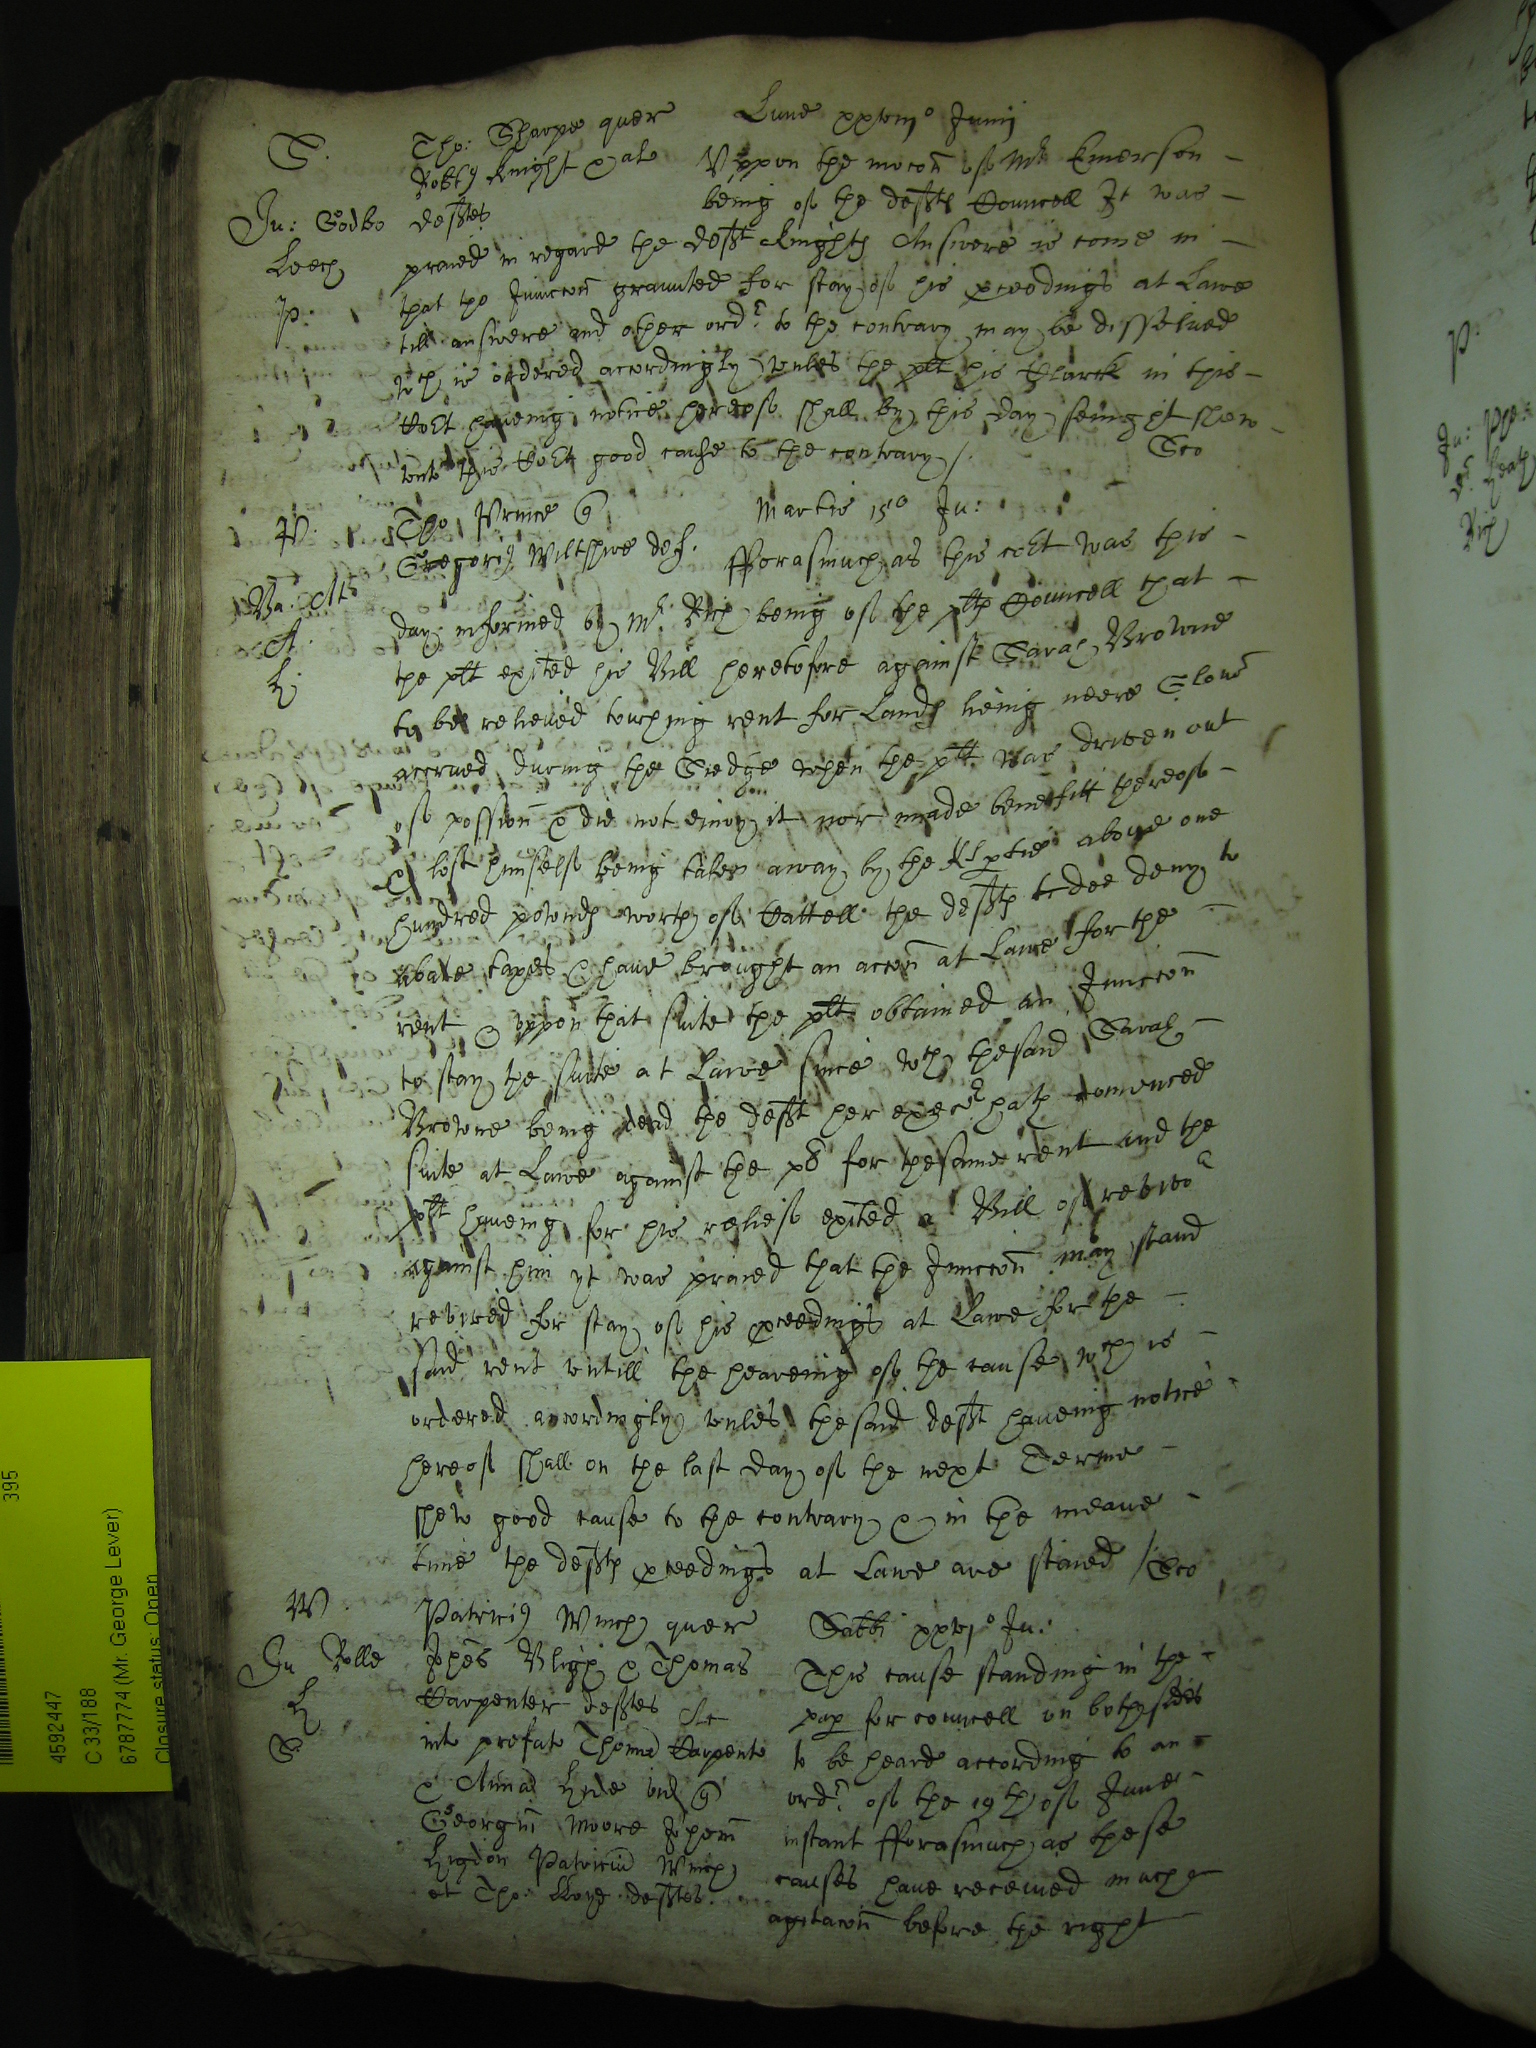 S.
Tho: Sharpe quer
Lune xxviijo Junij
Robtus Knight & al
Uppon the mocon of Mr Emerson
Ju: Godbo
defftes
being of the defftes Councell It was
Leech
praied in regard the defft Knights Answere is come in
P:
that the Iniuccon graunted for stay of his pceedings at Lawe
till answere and other ordr to the contrary may be dissolued
wch is ordered accordingly vnles the plt his Clarck in this
Cort haveing notice hereof shall by this day seinght shew
vnto this Cort good cause to the contrary /.
P:
Tho Prince q
Martis 15o Ju:
Gregorius Wiltshire def.
fforasmuch as this cort was this
day informed by Mr Rich being of the plts Councell that
A:
the plt exited his Bill heretofore against Sarah Browne
L:
to be relieued touching rent for Lands lieing neere Glouc
accrued during the Siedge when the plt was driven out
of possion & did not enioy it nor made benefitt thereof
& lost himself being taken away by the Kgs ptie aboue one
hundred pownds worth of Cattell the defft to dee deny to
abate taxes & haue brought an accon at Lawe for the
rent & vppon that suite the plt obtained an Iniuccon
to stay the suite at Lawe since wch the said Sarah
Browne being dead the defft her execor hath comenced
suite at Lawe against the pt for the same rent and the
plt haueing for his relief exited a Bill of revivor
against him yt was praied that the Iniuccon may stand
revived for stay of his pceedings at Lawe for the
said rent vntill the heareing of the cause wch is
ordered accordingly vnles the said defft haueing notice
hereof shall on the last day of the next Terme
shew good cause to the contrary & in the meane
time the deffts pceedings at Lawe are staied /
W
Patricius Winch quer
Sabbi xxvjo Ju:
Ju Rolle
Johes Bligh & Thomas
This cause standing in the
L
Carpenter defftes Ac
pap for councell on both sides
B.
int prefat Thoma Carpenter
to be heard according to an
& Anna Hyde vid q
ordr of the 19th of June
Georgiu Moore Johem
instant fforasmuch as these
Higdon Patriciu Winch
causes haue received much
et Tho: Lloyd defftes.
agitacon before the right
P:
Rich
395
4592447
C 33/188
6787774 (Mr. George Lever)
Closure status: Open